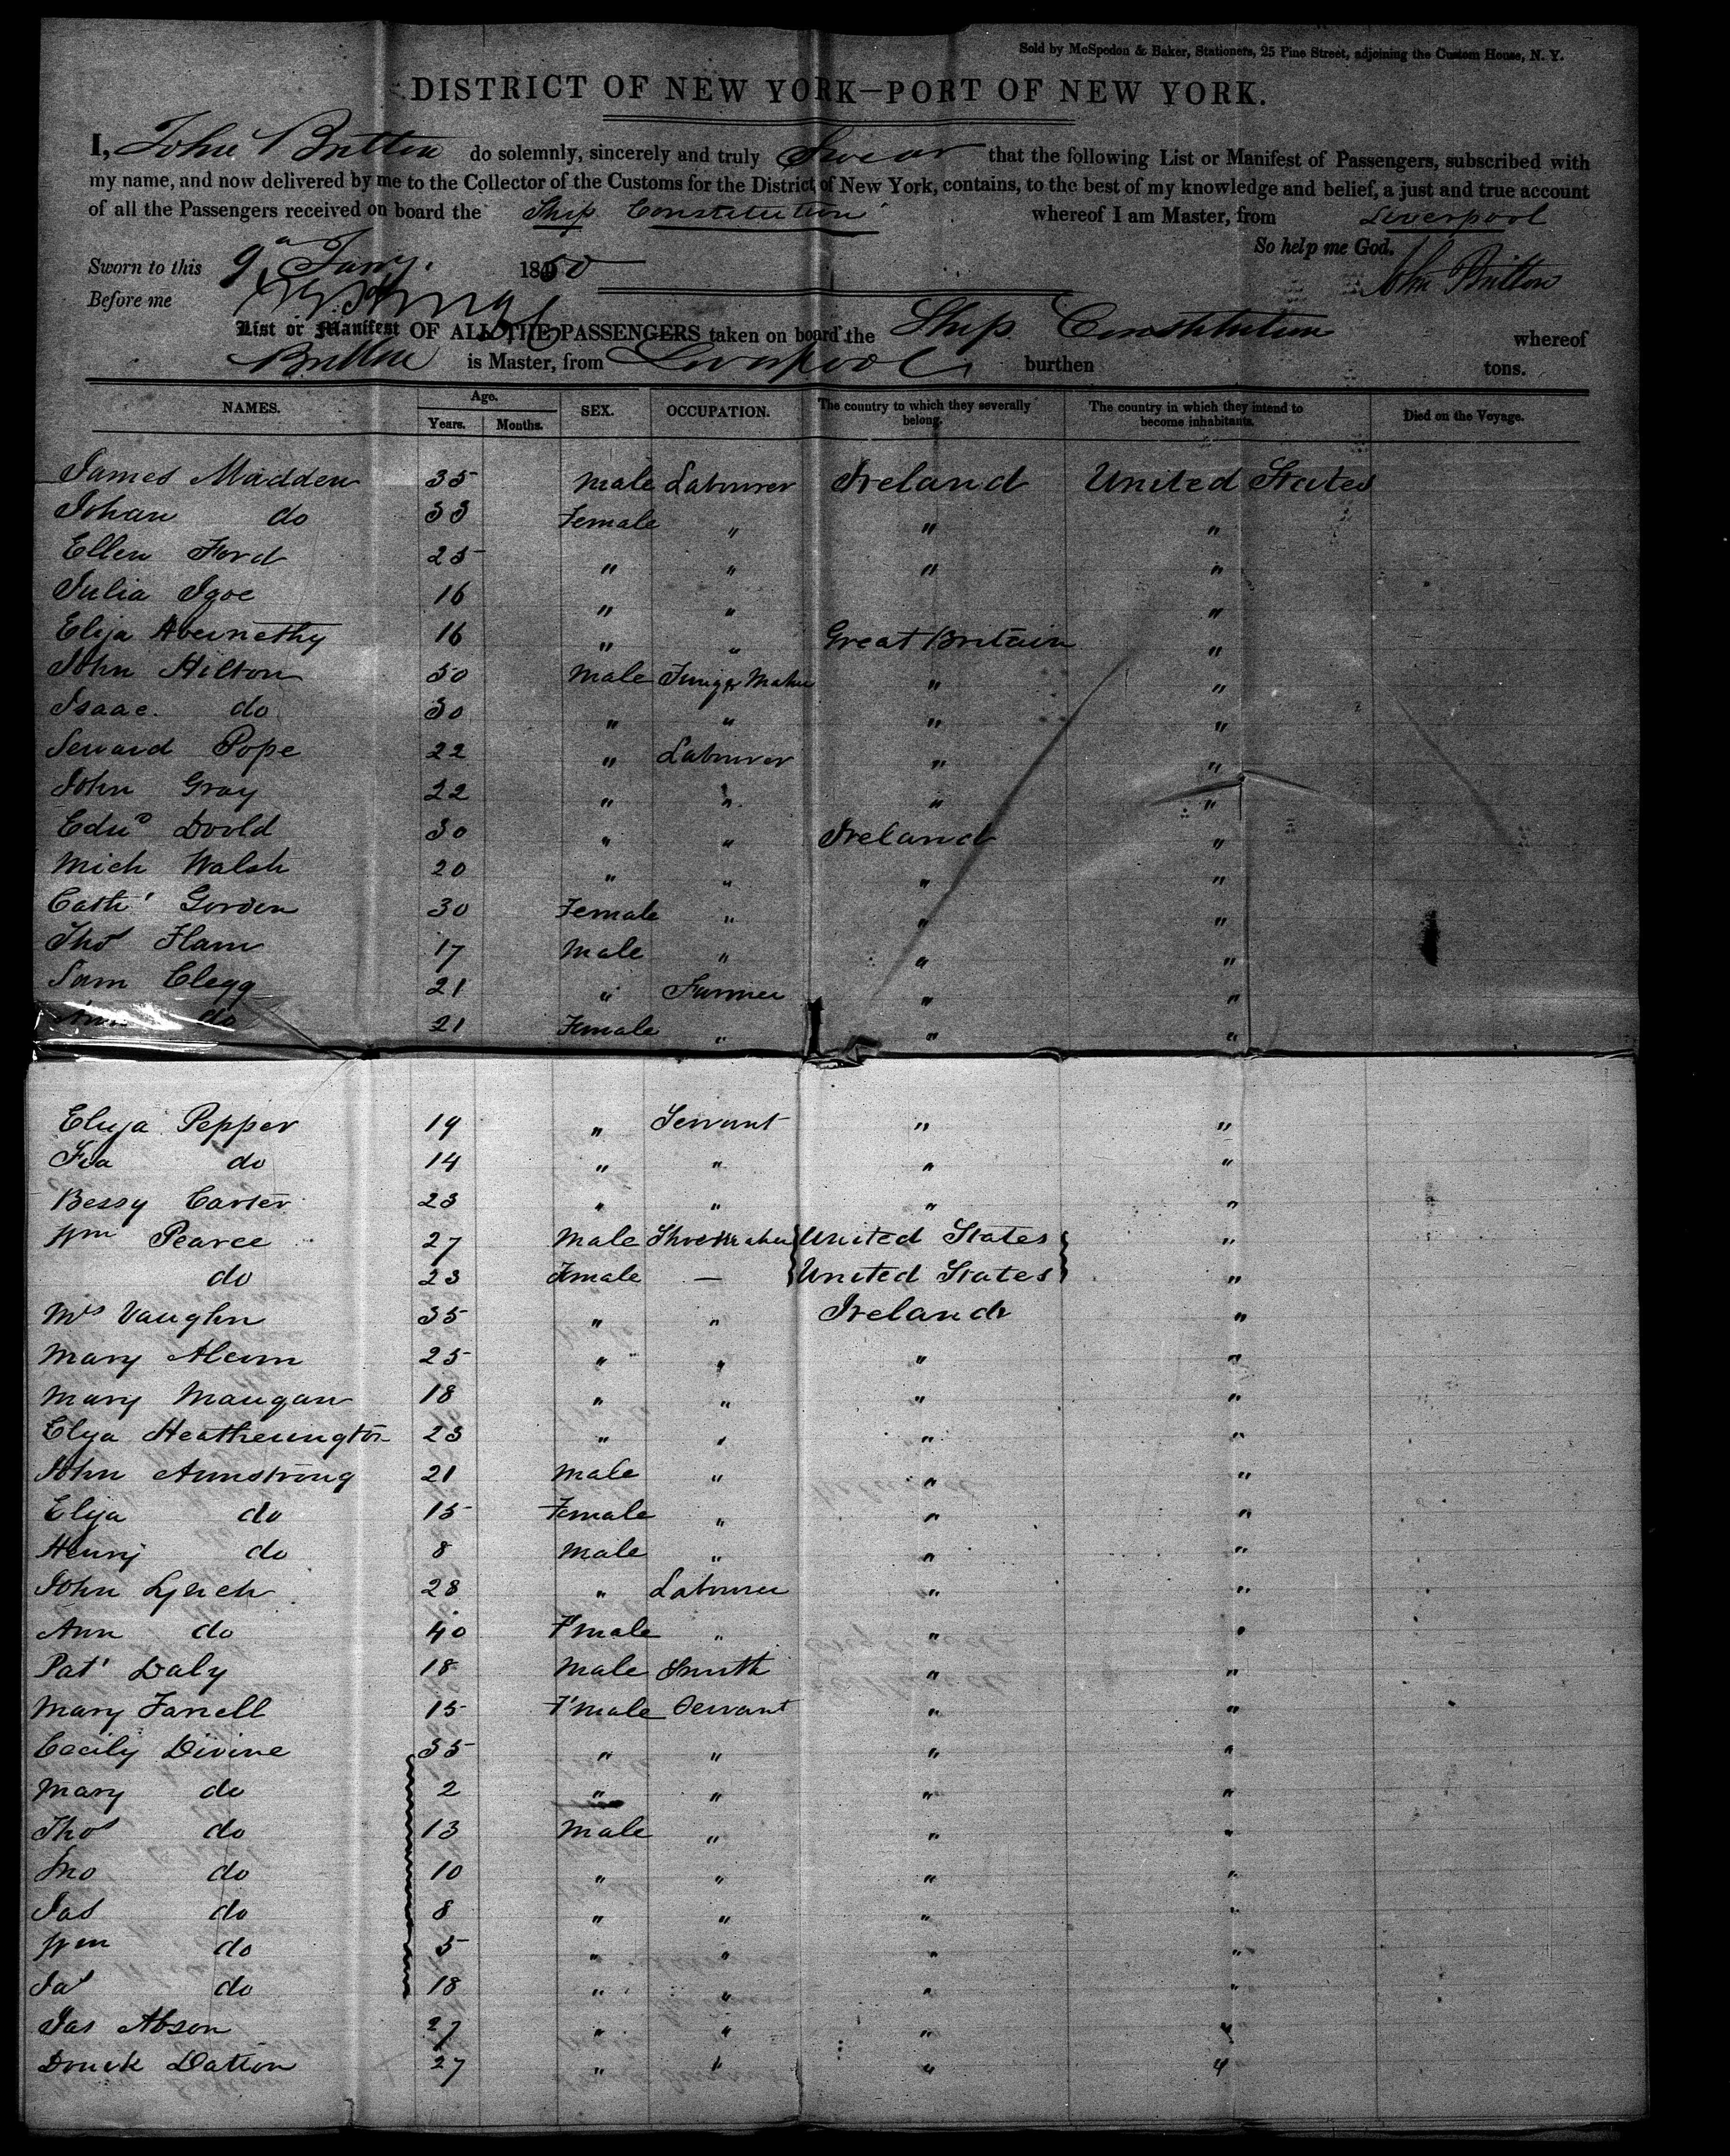 Sold by McSpedon & Baker, Stationers, 25 Pine Street, adjoining the Custom House, N. Y.
DISTRICT OF NEW YORK—PORT OF NEW YORK.
I, John Britton do solemnly, sincerely and truly Swear that the following List or Manifest of Passengers, subscribed with
my name, and now delivered by me to the Collector of the Customs for the District of New York, contains, to the best of my knowledge and belief, a just and true account
of all the Passengers received on board the Ship Constitution whereof I am Master, from Liverpool
So help me God.
Sworn to this 9th Jany. 1850 John Britton
Before me
List or Manifest OF ALL THE PASSENGERS taken on board the Ship Constitution whereof
Britton is Master, from Liverpool burthen tons.
NAMES. Age. Years. Months. SEX. OCCUPATION. The country to which they severally belong. The country in which they intend to become inhabitants. Died on the Voyage.
James Madden 35 Male Labourer Ireland United States
Johan do 33 Female " " "
Ellen Ford 25 " " " "
Julia Igoe 16 " " " "
Eliza Abernethy 16 " " Great Britain "
John Hilton 50 Male " "
Isaac do 30 " " " "
Seward Pope 22 " Labourer " "
John Gray 22 " " " "
Edwd Doold 30 " " Ireland "
Mich Walsh 20 " " " "
Cath' Gorden 30 Female " " "
Thos Flam 17 Male " " "
Sam Clegg 21 " Farmer " "
Ann do 21 Female " " "
Eliza Pepper 19 " Servant " "
do 14 " " " "
Bessy Carter 23 " " " "
Wm Pearce 27 Male Shoemaker United States "
do 23 Female — United States "
Mrs Vaughn 35 " " Ireland "
Mary Ahern 25 " " " "
Mary Maugan 18 " " " "
Eliza Heatherington 23 " " " "
John Armstrong 21 Male " " "
Eliza do 15 Female " " "
Henry do 8 Male " " "
John Lynch 28 " Labourer " "
Ann do 40 F'male " " "
Pat' Daly 18 Male Smith " "
Mary Farrell 15 F'male Servant " "
Cecily Divine 35 " " " "
Mary do 2 " " " "
Thos do 13 Male " " "
Jno do 10 " " " "
Jas do 8 " " " "
Wm do 5 " " " "
Jas do 18 " " " "
Jas Abson 27 " " " "
Datton 27 " " " "